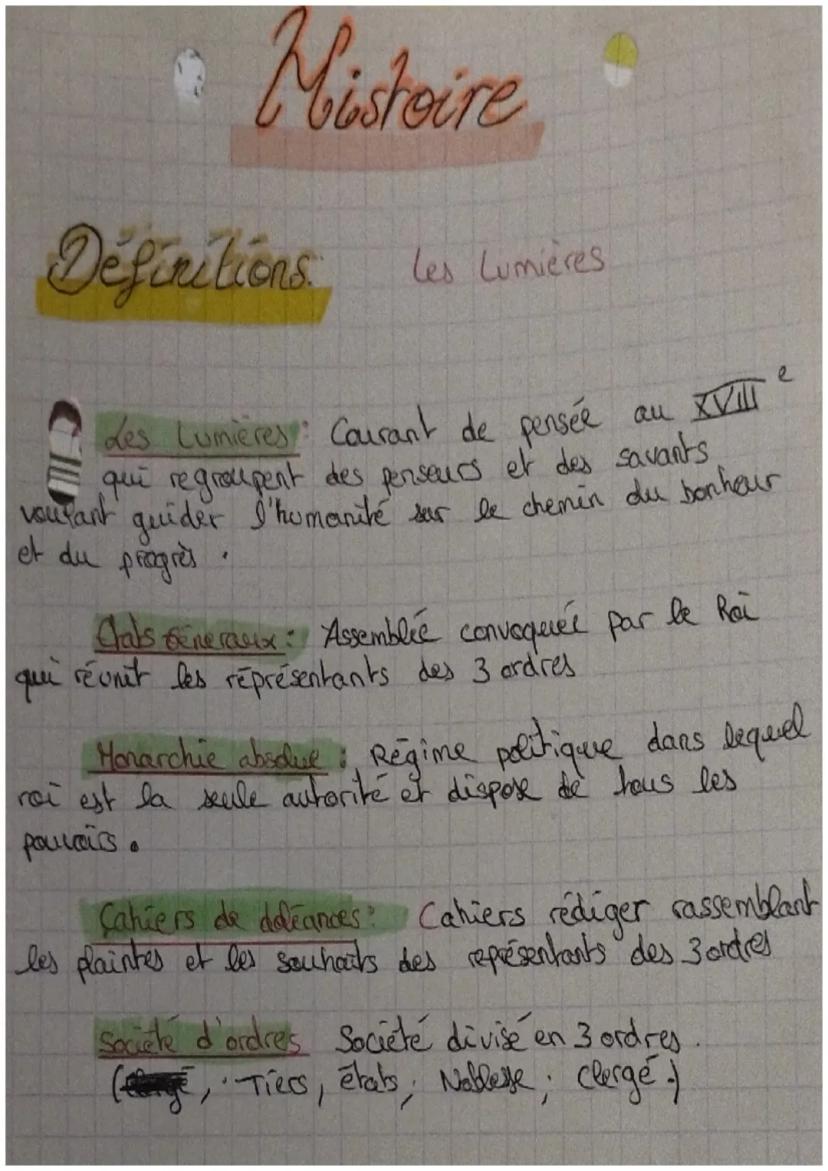 Histoire
Définitions: Les Lumières
Les Lumières : Courant de pensée au XVIII e
qui regroupent des penseurs et des savants
voulant guider l'humanité sur le chemin du bonheur
et du progrès.
États Généraux : Assemblée convoquée par le Roi
qui réunit les réprésentants des 3 ordres
Monarchie absolue : Régime politique dans lequel
roi est la seule autorité et dispose de tous les
pouvoirs.
Cahiers de doléances : Cahiers rédiger rassemblant
les plaintes et les souhaits des représentants des 3 ordres
Société d'ordres Société divisé en 3 ordres.
(, Tiers, états, Noblesse, Clergé.)